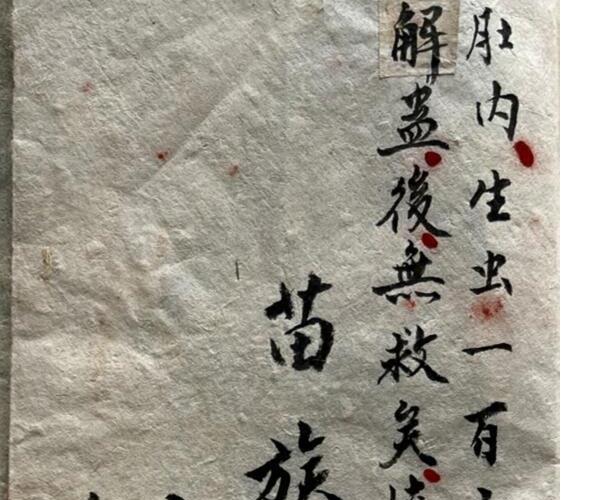 肚内生虫一百
解蛊後無救矣
苗族